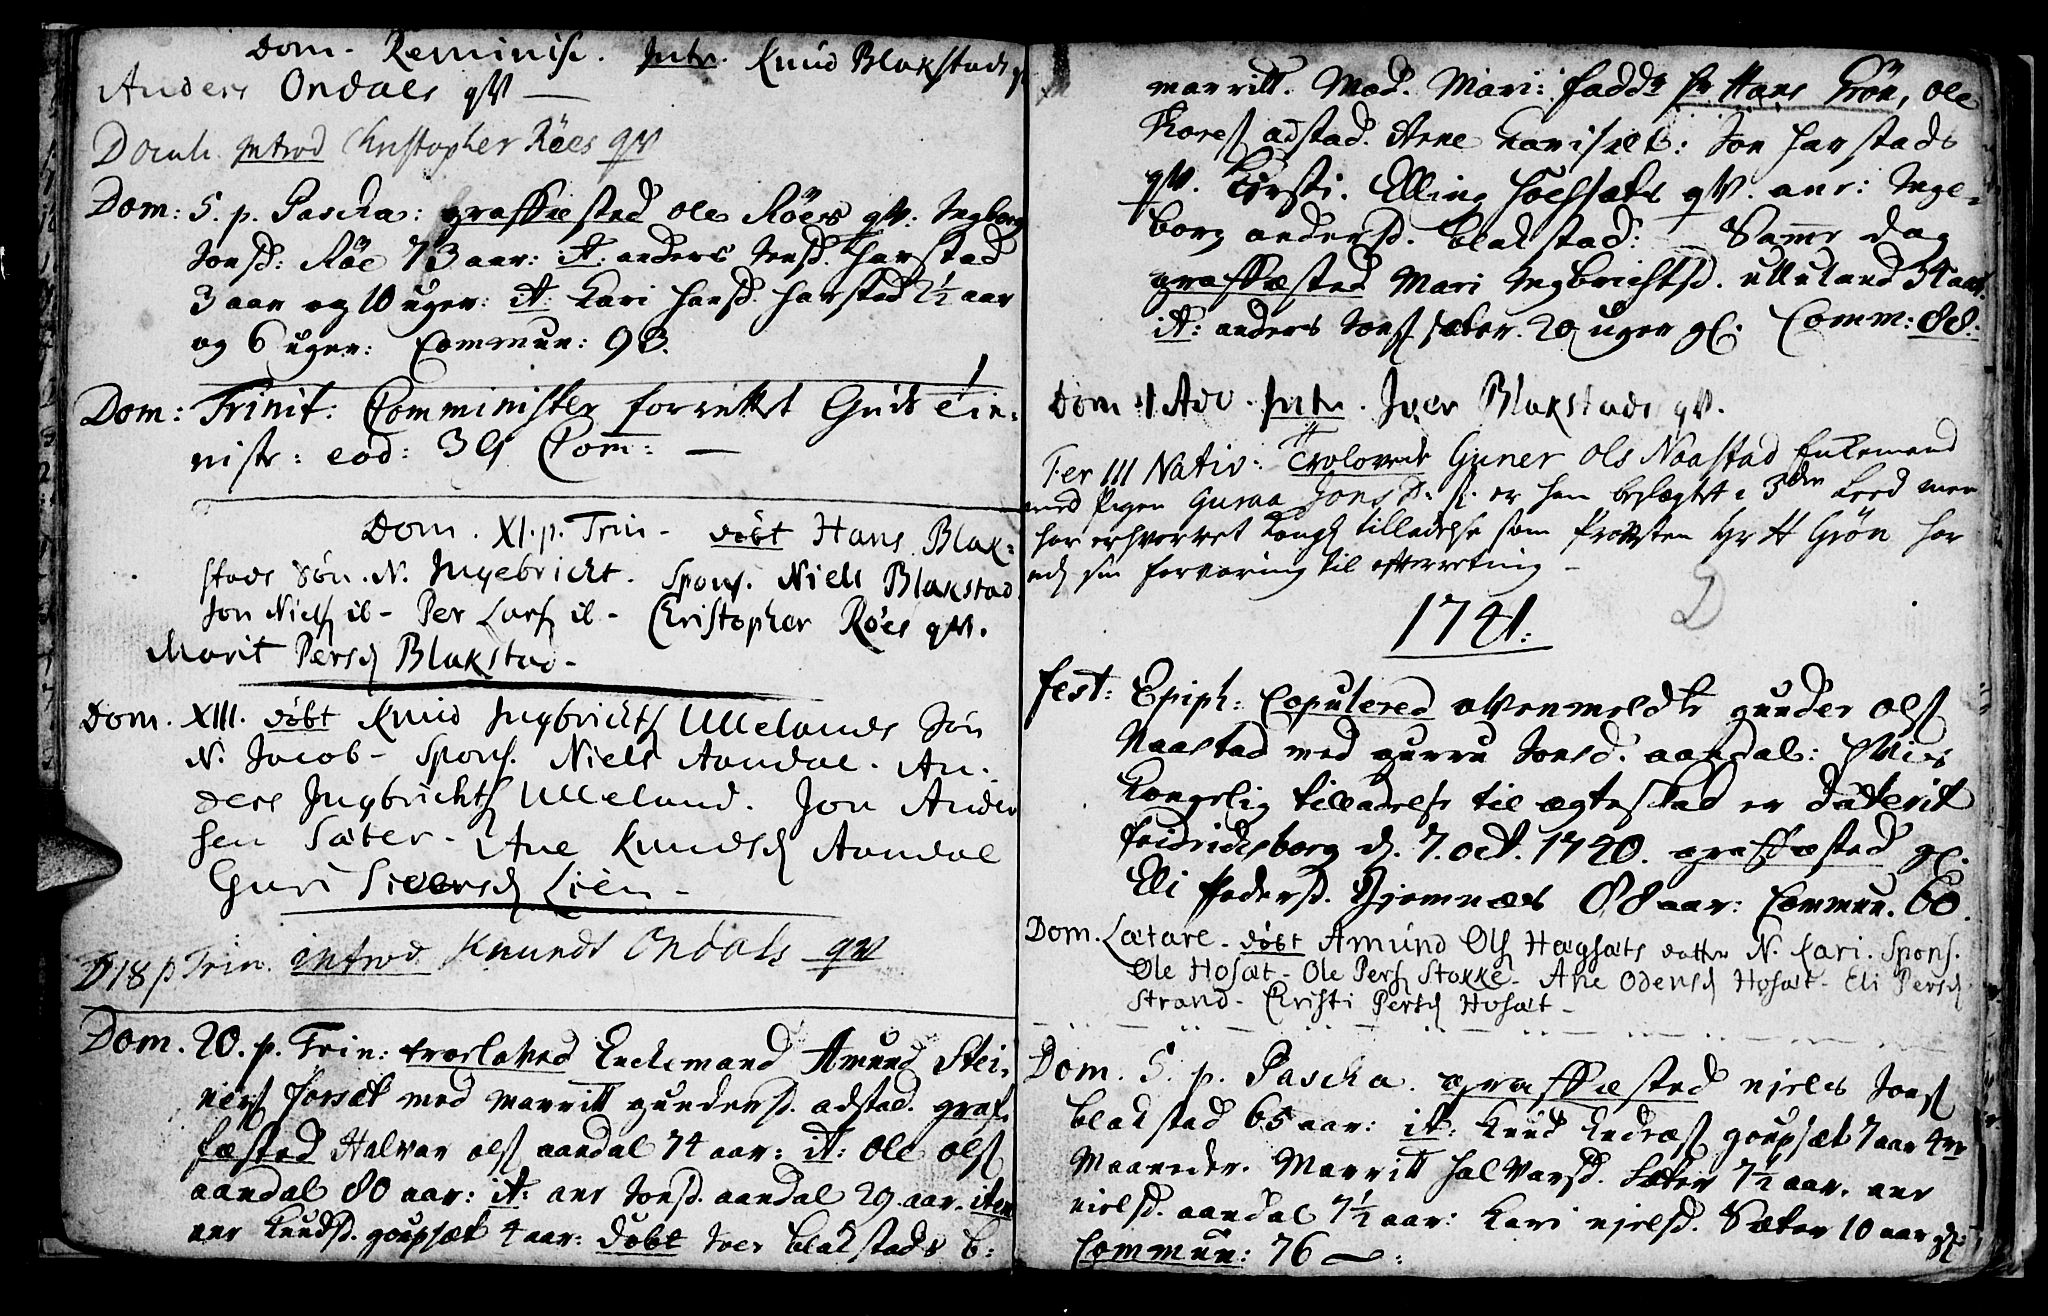 Dom. Reminisc. Intr. Knud Blakstads q
Anders Ondals qV —
Domin. introd Christopher Röes qV
Dom: 5. p. Pascha: graffæsted ole Röes qV: Ingborg
Jonsd: Röe 73 aar: it. anders Jensd. Harstad
3 aar og 10 uger: it: Kari Hansd. Harsted 2½ aar
og 6 uger: Commun: 93.
Dom: Trinit: Comminister forrettet Guds Tie-
niste: eod: 39 Com: —
Dom. XI. p. Trin - döbt Hans Blak-
stads Sön. N. Ingebricht. Spons. Niels Blakstad
Jon Niels ib - Per Lars ib - Christopher Röes qV.
Marit Persd Blakstad -
Dom. XIII. döbt Knud Ingbrichts Ullelands Sön
N. Jacob - Spons. Niels Aandal - An-
ders Ingbrichts Ulleland. Jon Ander
sen Sæter - Ane Knudsd Aandal
Guri Siversd Lien -
D 18 p Trin. introd. Knunds Ondals qV
Dom. 20. p. Trin: troelofved Enckemand Amund Stei-
ners Horsæt med Marritt gundersd. adstad. graf-
fæsted Halvar ols aandal 74 aar: it: ole ols
aandal 80 aar: it: ane Jonsd. aandal 29 aar. item
ane Knudsd. goupsæt 4 aar: döbt Iver blakstads b:
marritt. Mod. Mari: fadd: Hr Hans Grön, ole
Thores adstad. Arne Kariset: Jon Harstads
qV. Kirsti. Elling Hoelsæts qV. ane: Inge-
borg andersd. blakstad: Samme dag
graffæsted Mari Ingbrichtsd. Ulluland 34 aar.
it: anders Jons sæter. 20 uger gl: Comm: 88:
Dom 1 Adv. Intr. Iver Blakstads qV.
Fer III Nativ: Trolovede Guner Ols Naastad Enkemand
med Pigen Guraa Jonsd: er han beslægtet i 3die Leed men
har erhvervet Kongl tilladelse som Provsten Hr H Grön har
udj sin forvaring til efterretning -
1741:
Fest: Epiph: Copulered ovenmeldte gunder ols
Naastad med gurru Jonsd. aandal:
Kongelig tilladelse til ægteskab er daterit
fridrichsborg d. 7. oct. 1740. graffæsted gl.
Eli Pedersd. Gjemnæs 88 aar: Commun. 60.
Dom. Lætare. döbt Amund Ols Hægsæts datter N. Kari. Spons.
Ole Hosæt - Ole Pers Stokke - Ane Odensd Hosæt - Eli Persd
Strand - Christi Persd Hosæt -
Dom. 5. p. Pascha. graffæsted njels Jons
blakstad 65 aar: it: Knud Endres goupsæt 7 aar 4re
Maaneder. Marritt Halvarsd. Sæter 7½ aar. ane
nielsd. aandal 7½ aar: Kari njelsd. Sæter 10 aar gl:
Commun: 76 —: